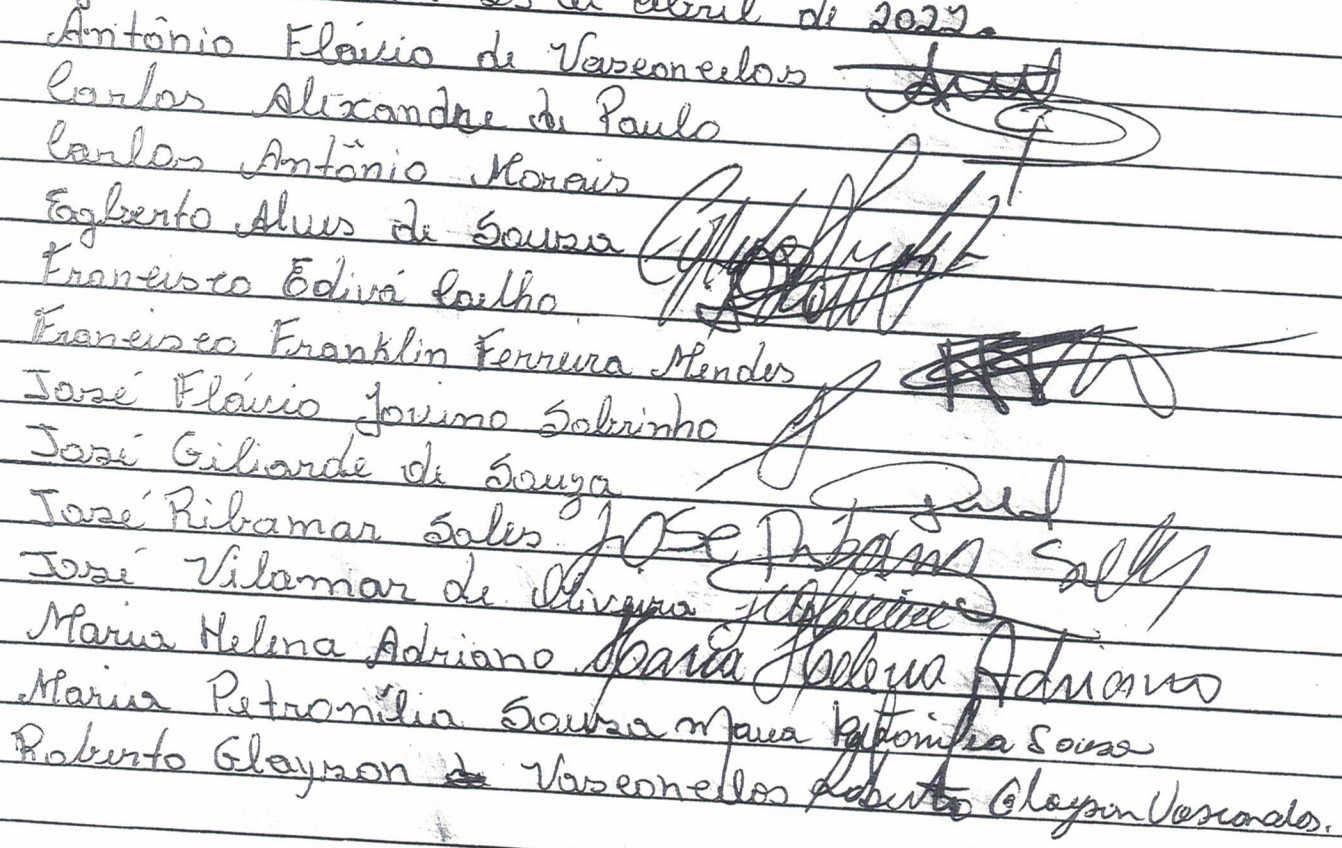 de abril de 2022.
Antônio Flávio de Vasconcelos
Carlos Alexandre de Paulo
Carlos Antônio Morais
Egberto Alves de Souza
Francisco Edivá Coelho
Francisco Franklin Ferreira Mendes
José Flávio Jovino Sobrinho
José Giliarde de Souza
José Ribamar Sales José Ribamar Sales
José Vilamar de Oliveira
Maria Helena Adriano Maria Helena Adriano
Maria Petronília Souza Maria Petronilia Souza
Roberto Glayson Vasconcellos Roberto Glayson Vasconcelos.